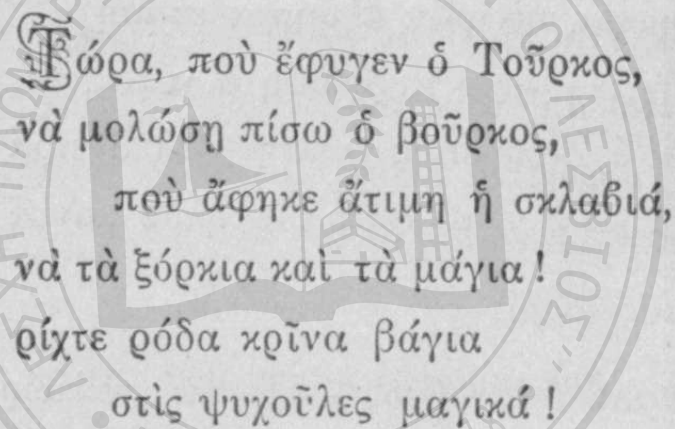 Τώρα, ποὺ ἔφυγεν ὁ Τοῦρκος,
νὰ μολώσῃ πίσω ὁ βοῦρκος,
ποὺ ἄφηκε ἄτιμη ἡ σκλαβιά,
νὰ τὰ ξόρκια καὶ τὰ μάγια !
ρίχτε ρόδα κρῖνα βάγια
στὶς ψυχοῦλες μαγικά !
ΛΕΣΧΗ ΠΛΩΜ
Ο ΛΕΣΒΙΟΣ"